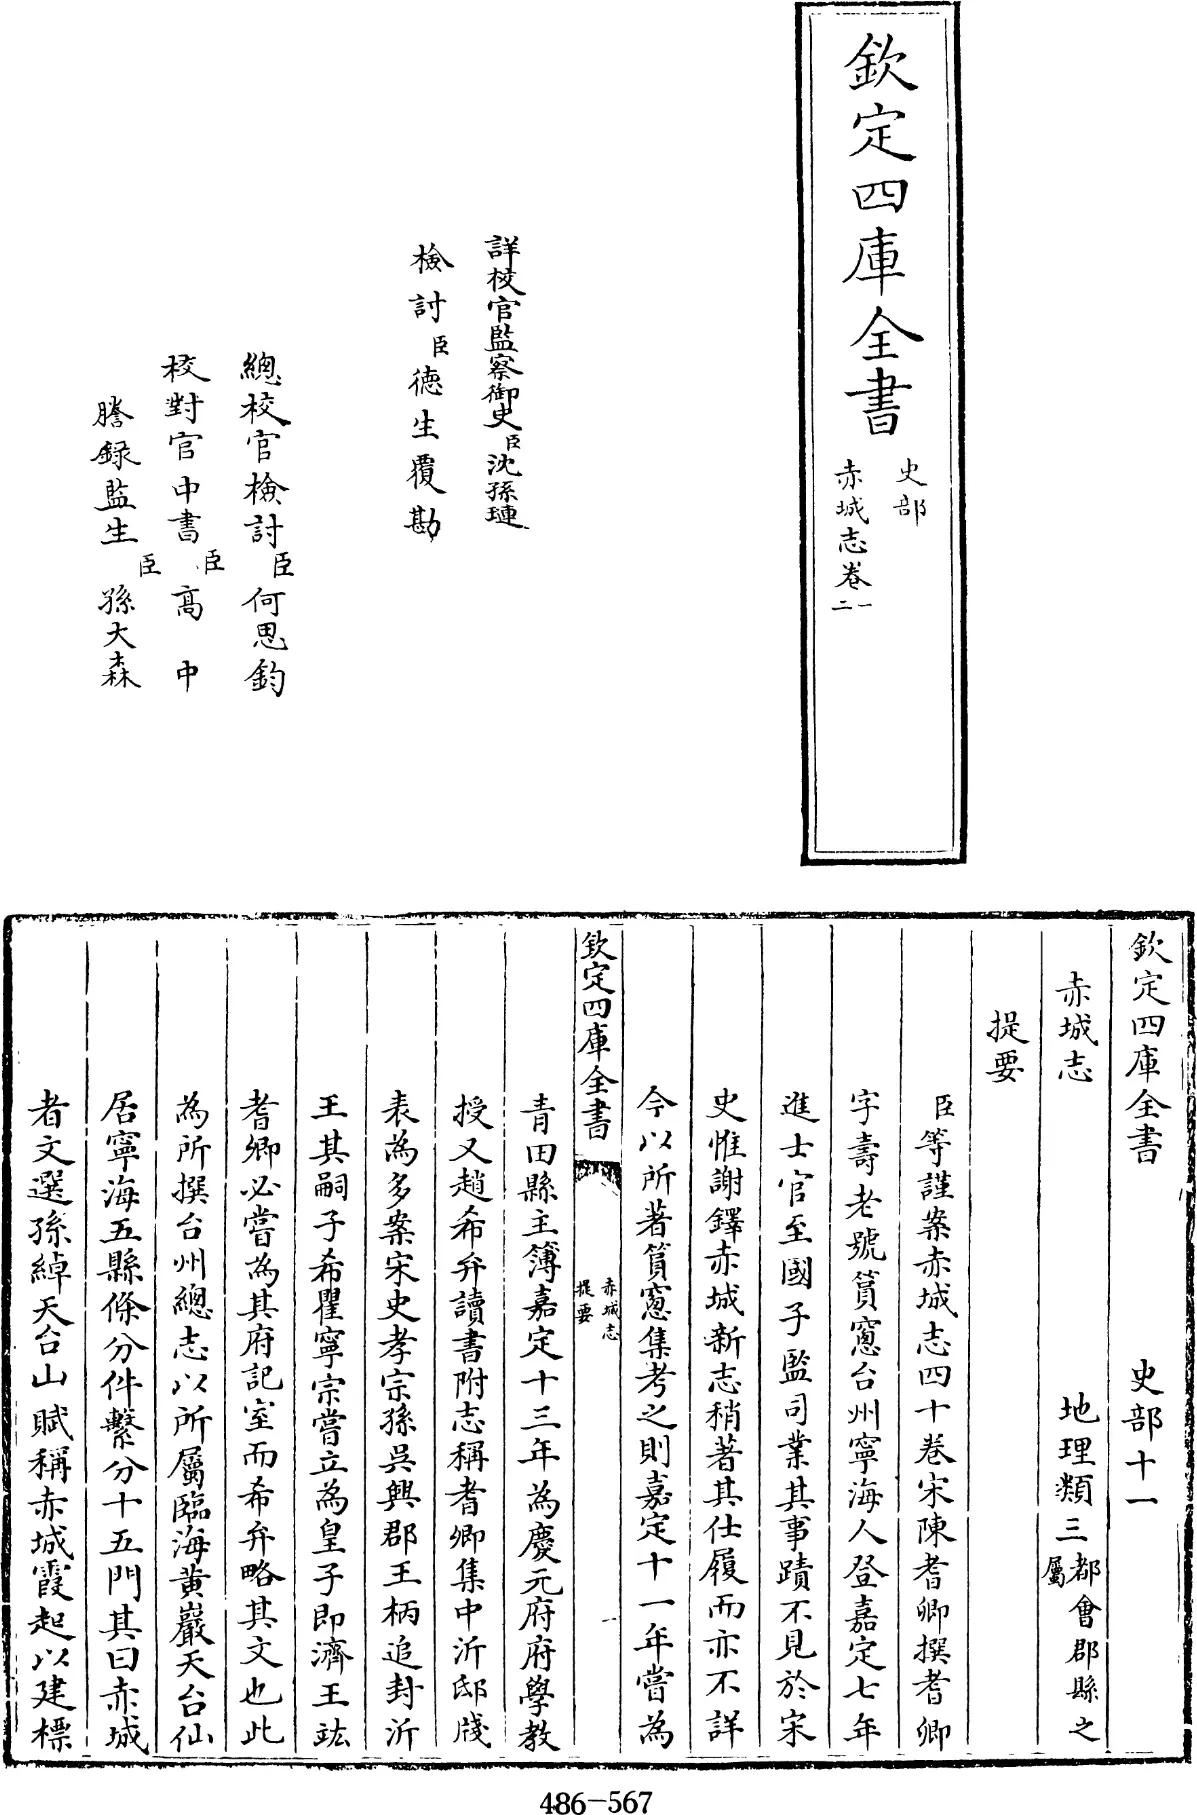 欽定四庫全書
史部
赤城志卷一
二
詳校官監察御史臣沈孫璉
檢討臣德生覆勘
總校官檢討臣何思鈞
校對官中書臣高中
謄錄監生臣孫大森
欽定四庫全書 史部十一
赤城志 地理類三都會郡縣之屬
提要
臣等謹案赤城志四十卷宋陳耆卿撰耆卿
字壽老號篔窻台州寧海人登嘉定七年
進士官至國子監司業其事蹟不見於宋
史惟謝鐸赤城新志稍著其仕履而亦不詳
今以所著篔窻集考之則嘉定十一年嘗為
欽定四庫全書
赤城志
提要
一
青田縣主簿嘉定十三年為慶元府府學教
授又趙希弁讀書附志稱耆卿集中沂邸牋
表為多案宋史孝宗孫吳興郡王柄追封沂
王其嗣子希瞿寧宗嘗立為皇子即濟王竑
耆卿必嘗為其府記室而希弁略其文也此
為所撰台州總志以所屬臨海黃巖天台仙
居寧海五縣條分件繫分十五門其曰赤城
者文選孫綽天台山賦稱赤城霞起以建標
486-567